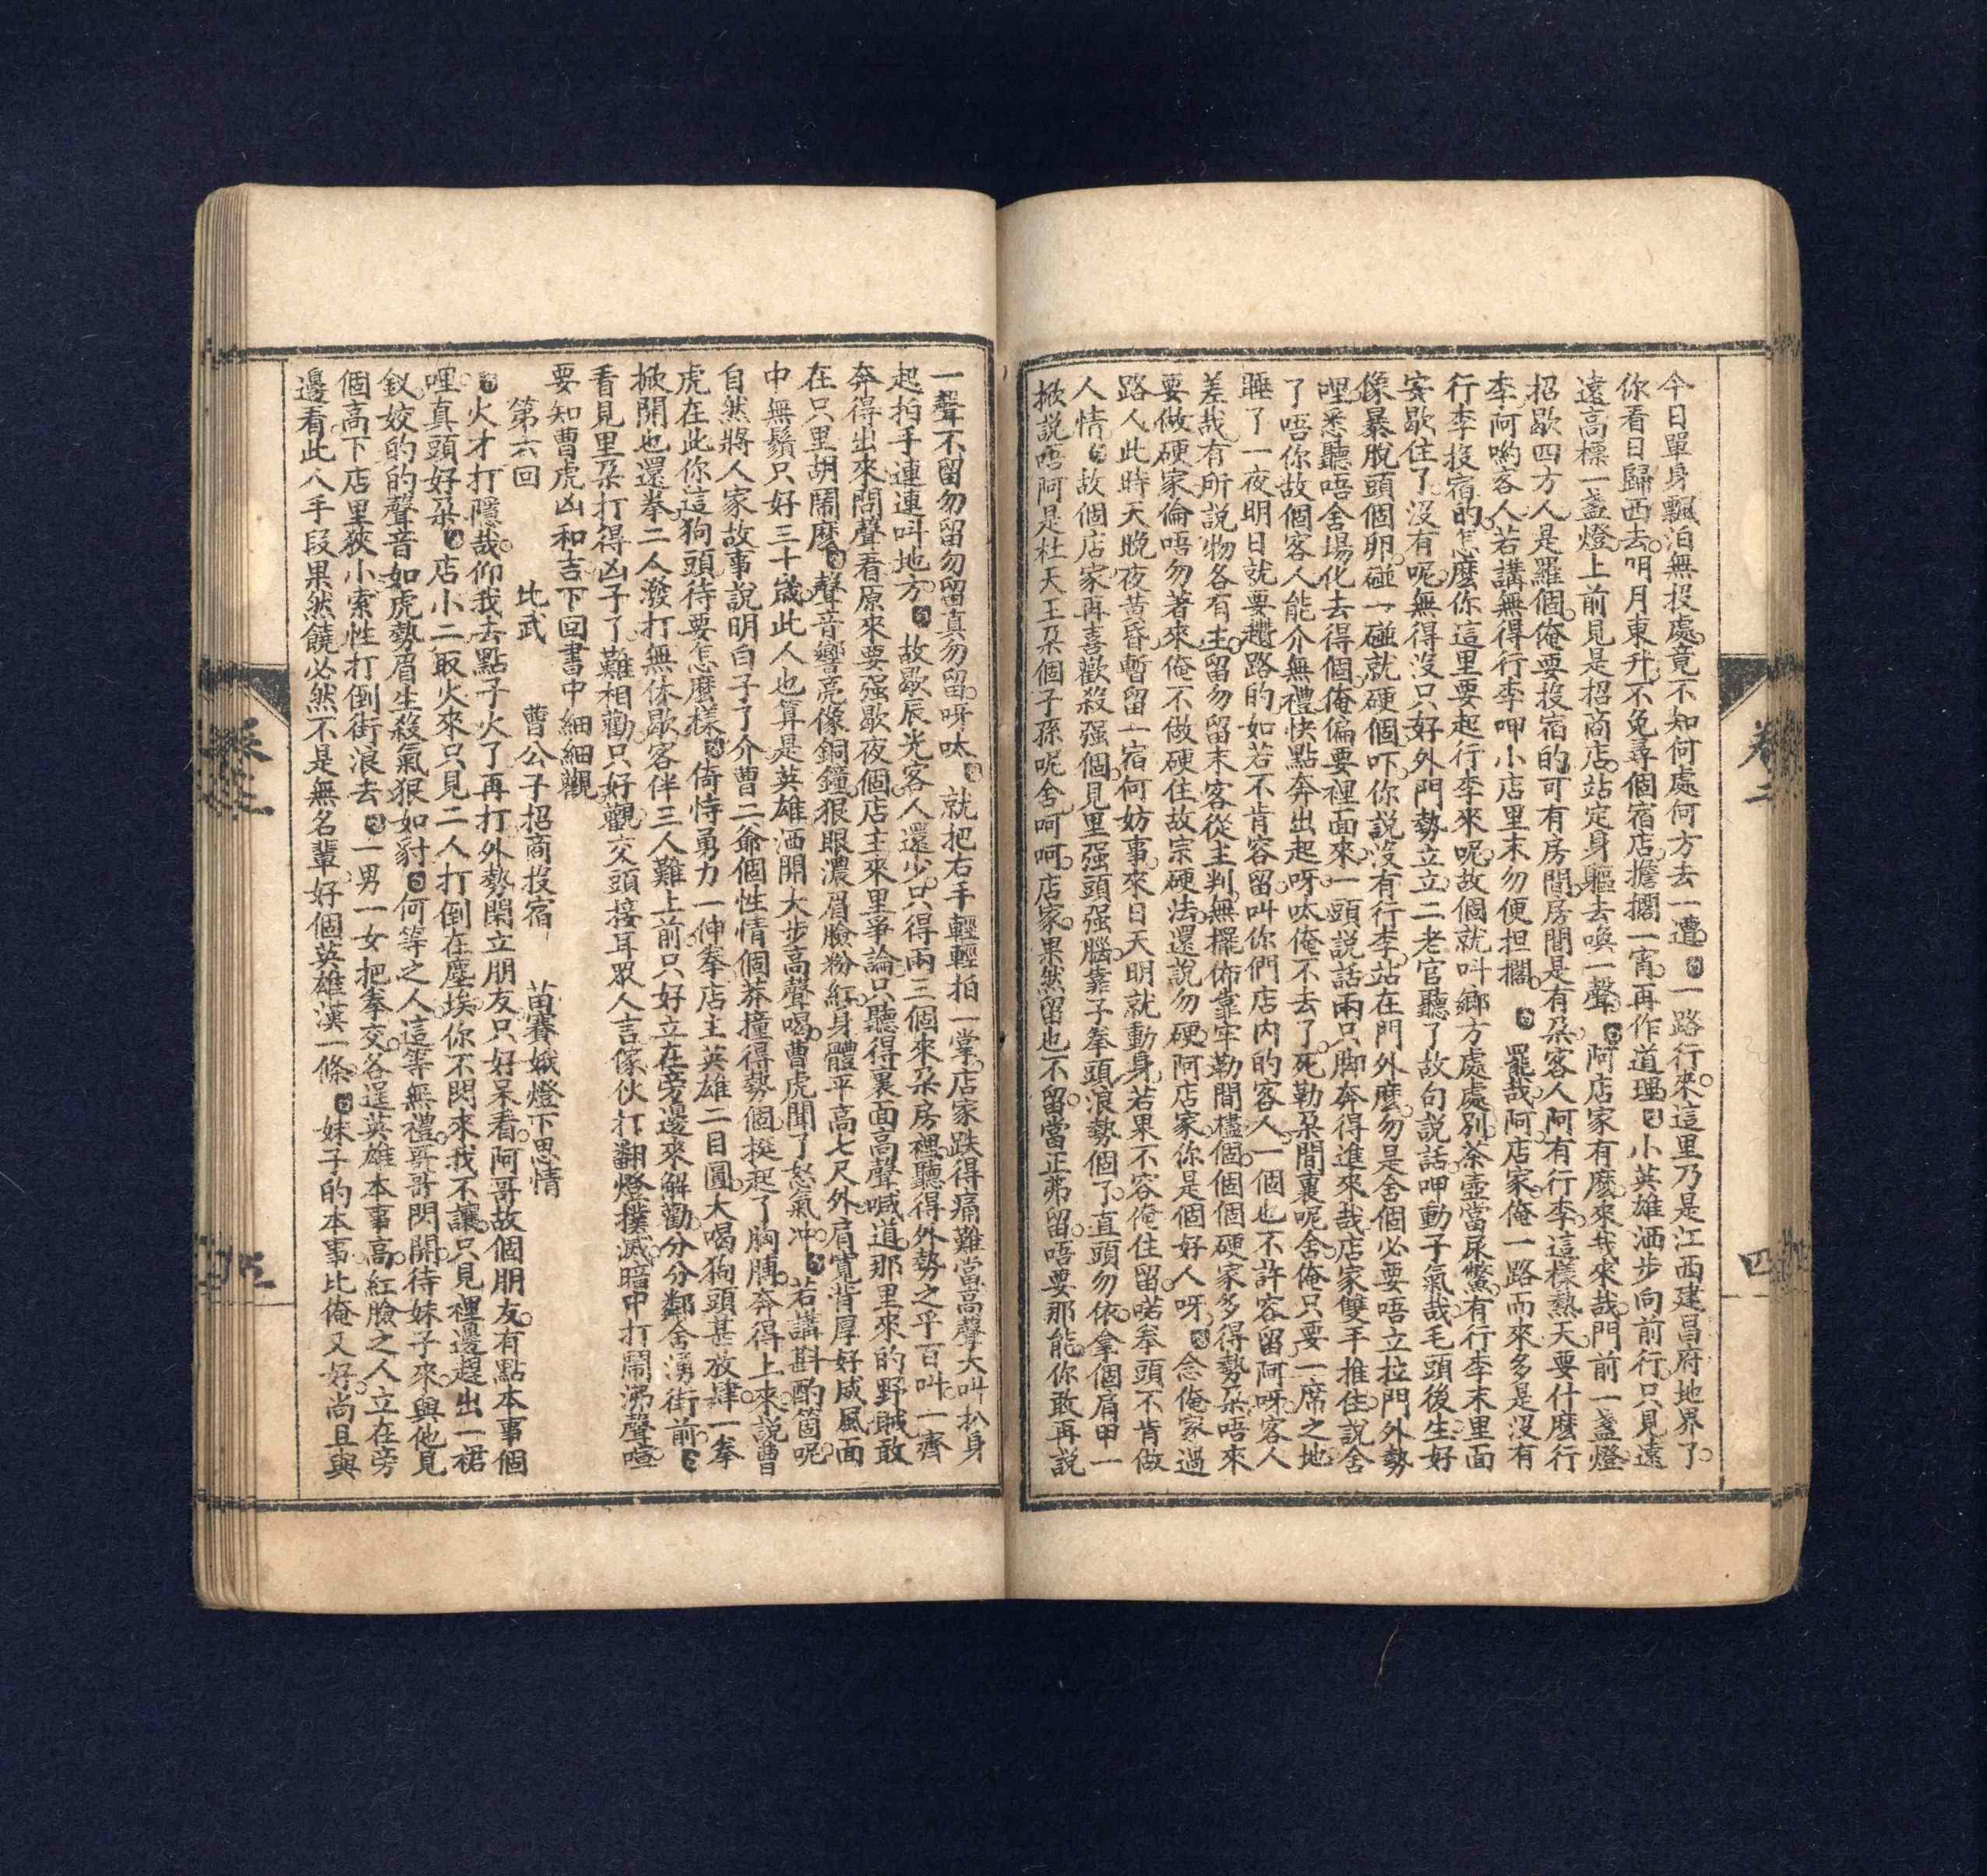 今日單身飄泊無投處。竟不知何處何方去一遭。一路行來。這里乃是江西建昌府地界了。
你看日歸西去。明月東升。不免尋個宿店。擔擱一宵。再作道理。小英雄洒步向前行。只見遠
遠高標一盞燈。上前見是招商店。站定身軀去喚一聲。阿店家有麽來哉來哉。門前一盞燈
招歇四方人。是羅個。俺要投宿的。可有房間。房間是有朵。客人阿有行李。這樣熱天要什麽行
李。阿喲客人。若講無得行李呷。小店里末勿便担擱。罷哉。阿店家。俺一路而來。多是沒有
行李投宿的。怎麽你這里要起行李來呢。故個就叫鄉方處處別。茶壺當尿鱉。有行李末里面
安歇住了。沒有呢。無得沒只好外門勢立立。二老官聽了故句說話。呷動子氣哉。毛頭後生好
像暴脫頭個卵。碰一碰就硬個。吓你說沒有行李。站在門外麽。勿是舍個必要唔立拉門外勢
哩。悉聽唔舍場化去得個。俺偏要裡面來。一頭說話兩只脚奔得進來哉。店家雙手推住說舍
了。唔你故個客人能介無禮。快點奔出起。呀呔。俺不去了。死勒朵間裏呢舍。俺只要一席之地
睡了一夜。明日就要趲路的。如若不肯容留。叫你們店内的客人。一個也不許容留。阿呀客人
差哉。有所說物各有主。留勿留末客從主判。無擺佈靠牢勒間檯個個個硬家。多得勢朵。唔來
要做硬家。倫唔勿著來。俺不做硬住。故宗硬法還說勿硬。阿店家。你是個好人呀。念俺家過
路人。此時天晚夜黄昏。暫留一宿何妨事。來日天明就動身。若果不容俺住留。喏拳頭不肯做
人情。故個店家再喜歡殺强個。見里强頭强腦。靠子拳頭浪勢個了。直頭勿依。拿個肩甲一
掀。說唔阿是杜天王朵個子孫呢舍。呵呵。店家果然留也不留。當正弗留。唔要那能。你敢再說
一聲不留。勿留勿留真勿留。呀呔。就把右手輕輕拍一掌。店家跌得痛難當。高聲大叫扒身
起。拍手連連叫地方。故歇辰光客人還少。只得兩三個來朵房裡。聽得外勢之乎百叫。一齊
奔得出來。問聲看原來要强歇夜個。店主來里爭論。只聽得裏面高聲喊道。那里來的野賊。敢
在只里胡鬧麽。聲音響亮像銅鐘。狠眼濃眉臉粉紅。身體平高七尺外。肩寬背厚好威風。面
中無鬚只好三十歲。此人也算是英雄。洒開大步高聲喝。曹虎聞了怒氣冲。若講斟酌箇呢
自然將人家故事說明白子了介。曹二爺個性情個莽撞得勢個。挺起了胸膊。奔得上來。說曹
虎在此。你這狗頭待要怎麽樣。倚恃勇力一伸拳。店主英雄二目圓。大喝狗頭甚放肆。一拳
掀開也還拳。二人潑打無休歇。客伴三人難上前。只好立在旁邊來解勸。分分鄰舍湧街前。
看見里朵打得凶子了。難相勸只好觀。交頭接耳眾人言。傢伙打翻燈撲滅。暗中打鬧沸聲喧
要知曹虎凶和吉。下回書中細細觀
第六回　比武　曹公子招商投宿　苗賽娥燈下思情
火才打隱哉。仰我去點子火了再打。外勢閑立朋友。只好呆看。阿哥故個朋友。有點本事個
哩。真頭好朵。店小二取火來。只見二人打倒在塵埃。你不閃來我不讓。只見裡邊趕出一裙
釵。姣的的聲音如虎勢。眉生殺氣狠如豺。何等之人。這等無禮。哥哥閃開。待妹子來與他見
個高下。店里狹小。索性打倒街浪去。一男一女把拳交。各逞英雄本事高。紅臉之人立在旁
邊看。此人手段果然饒。必然不是無名輩。好個英雄漢一條。妹子的本事比俺又好。尚且與
卷二
四
卷二
五